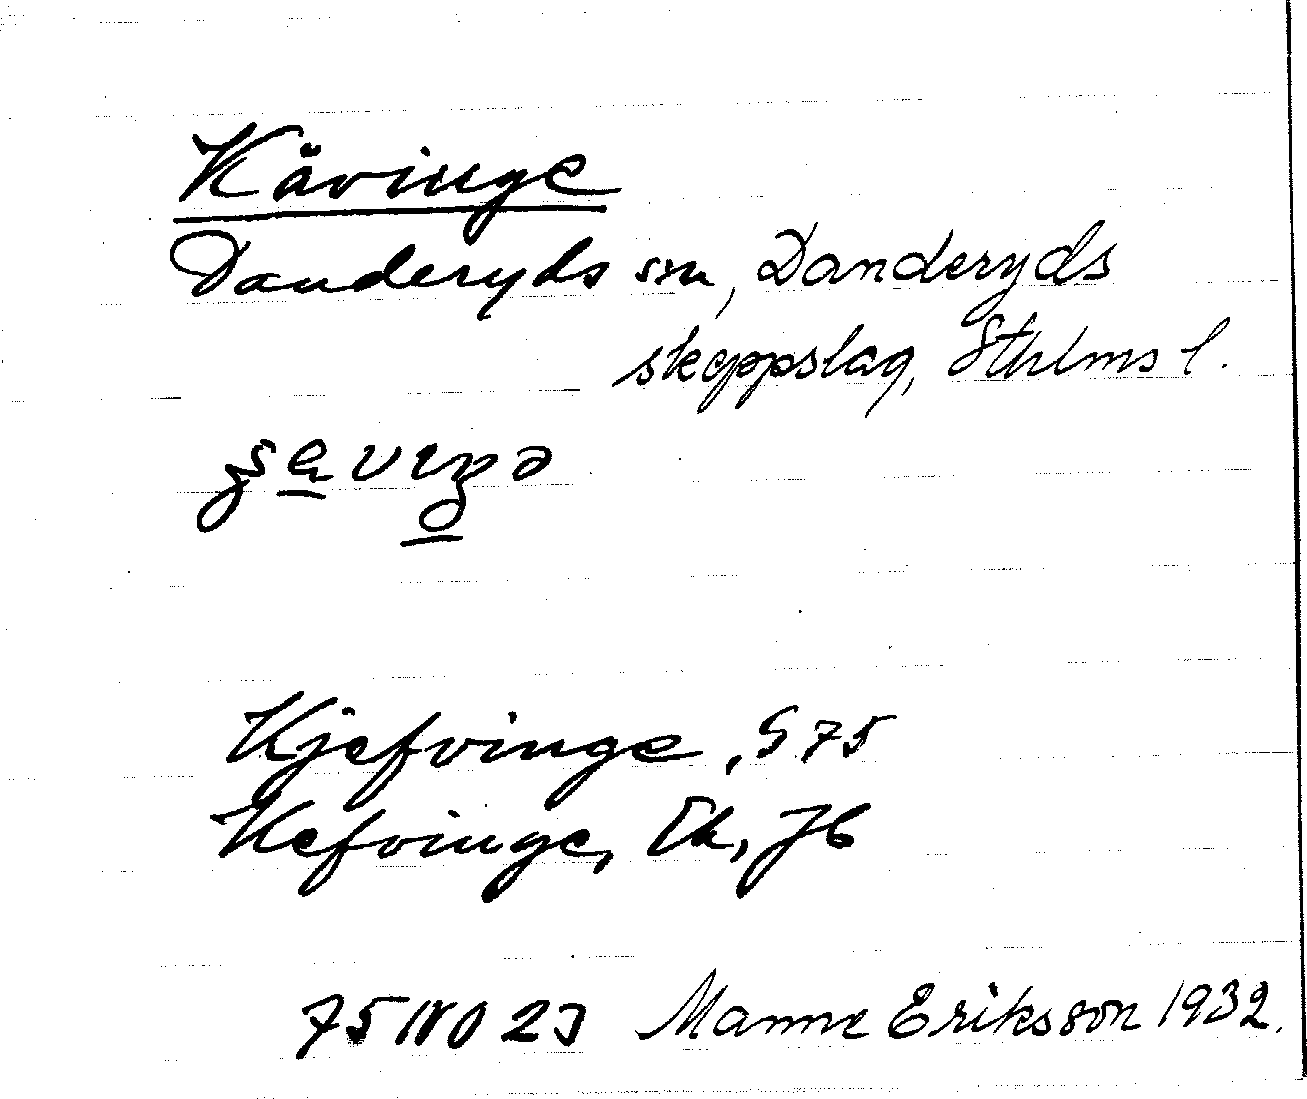 Kävinge
Danderyds sn, Danderyds
skeppslag, Sthlms l.
Kjefvinge, S 75
Kefvinge, Ek, Jb
75 NO 23 Manne Eriksson 1932.